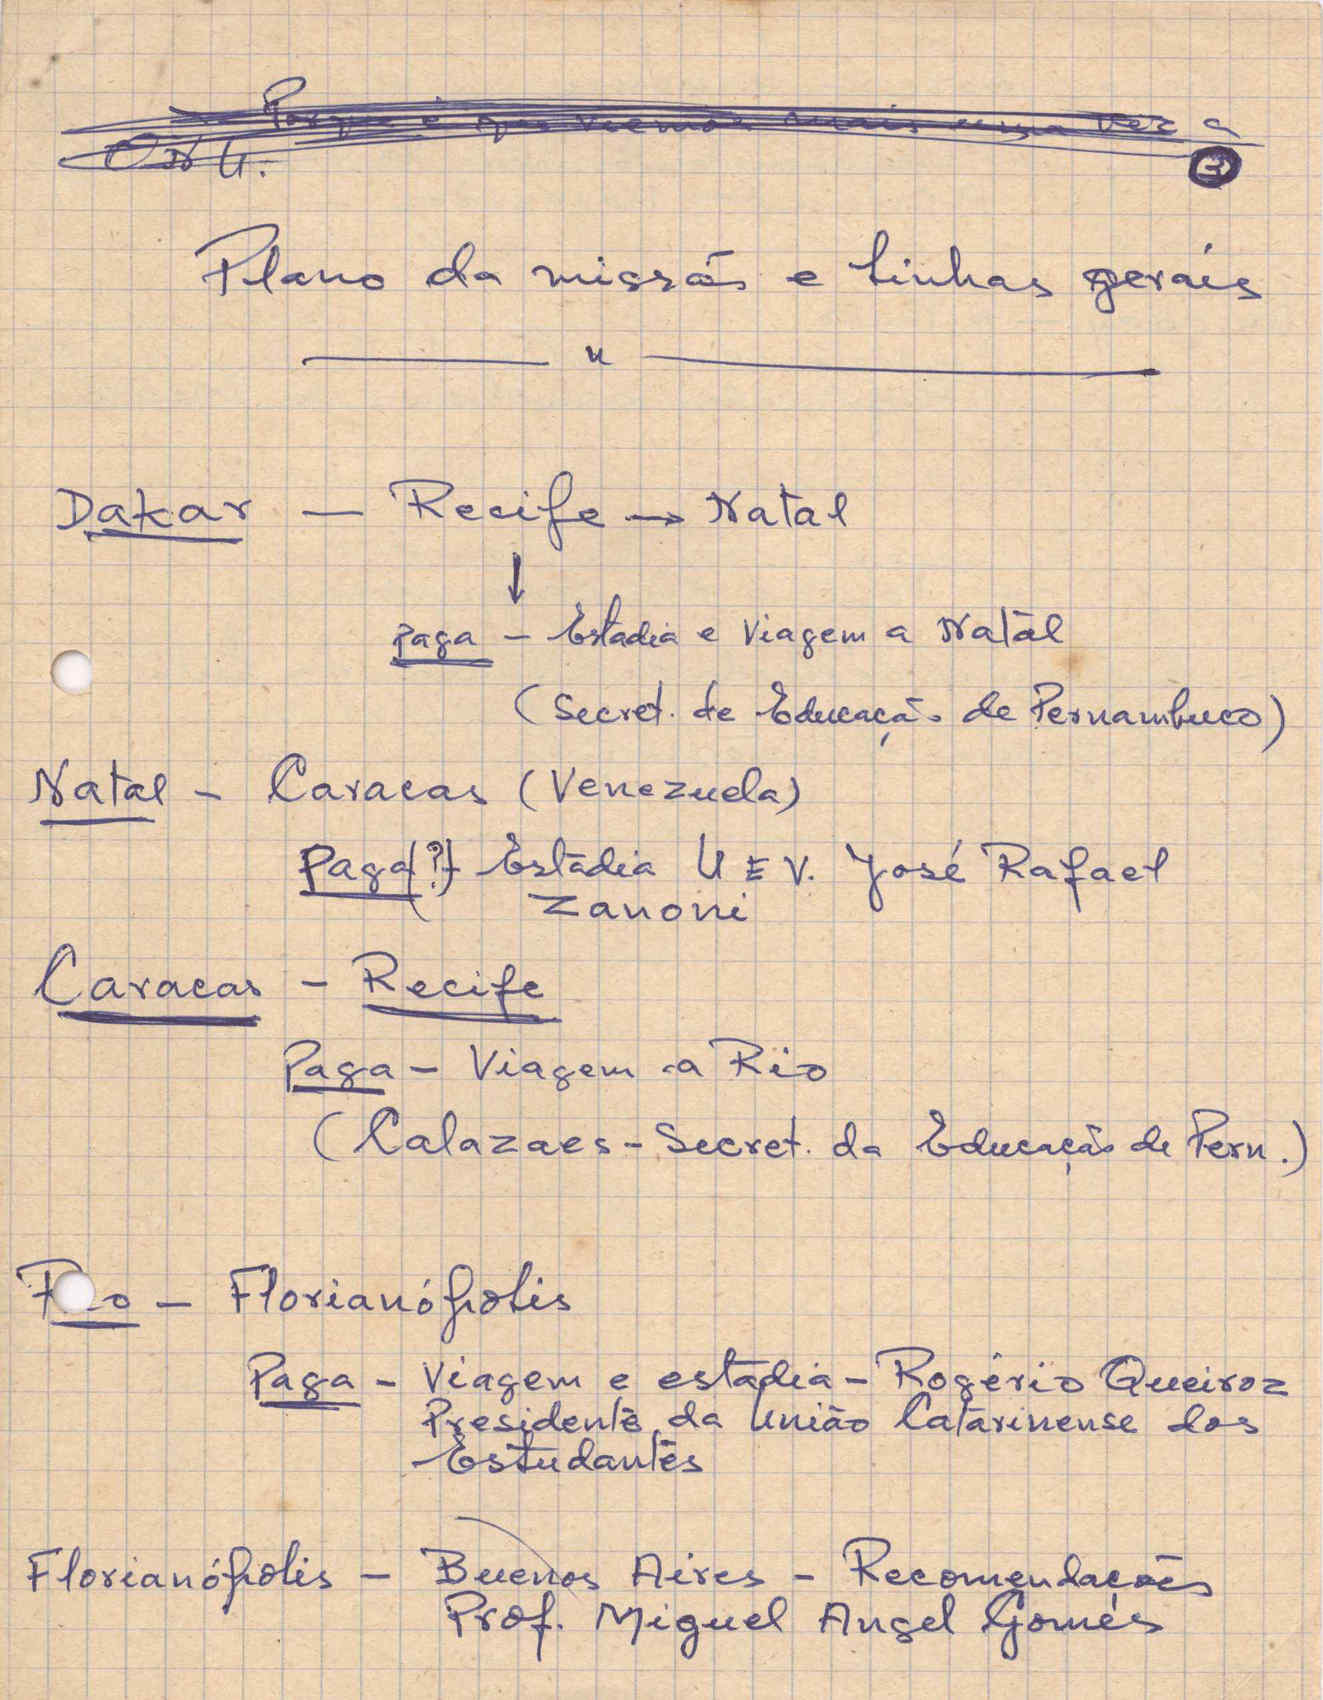 Porque é que viemos mais uma vez a
ONU.
3
Plano da missão e linhas gerais
Dakar — Recife → Natal
↓
paga - Estadia e Viagem a Natal
(Secret. de Educação de Pernambuco)
Natal - Caracas (Venezuela)
Paga (?) Estadia U E V. José Rafael
Zanoni
Caracas - Recife
Paga - Viagem a Rio
(Calazaes - Secret. da Educação de Pern.)
Rio - Florianópolis
Paga - Viagem e estadia - Rogério Queiroz
Presidente da União Catarinense dos
Estudantes
Florianópolis - Buenos Aires - Recomendações
Prof. Miguel Angel Gomés